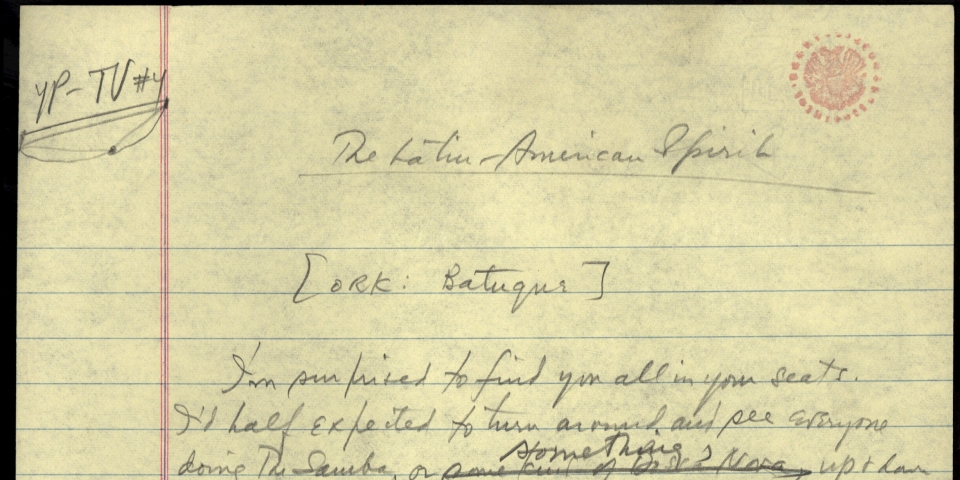 YP-TV #4
The Latin-American Spirit
[ORK: Batuque]
I'm surprised to find you all in your seats.
I'd half expected to turn around and see everyone
something
doing the Samba, or some kind of Bossa Nova, up & down